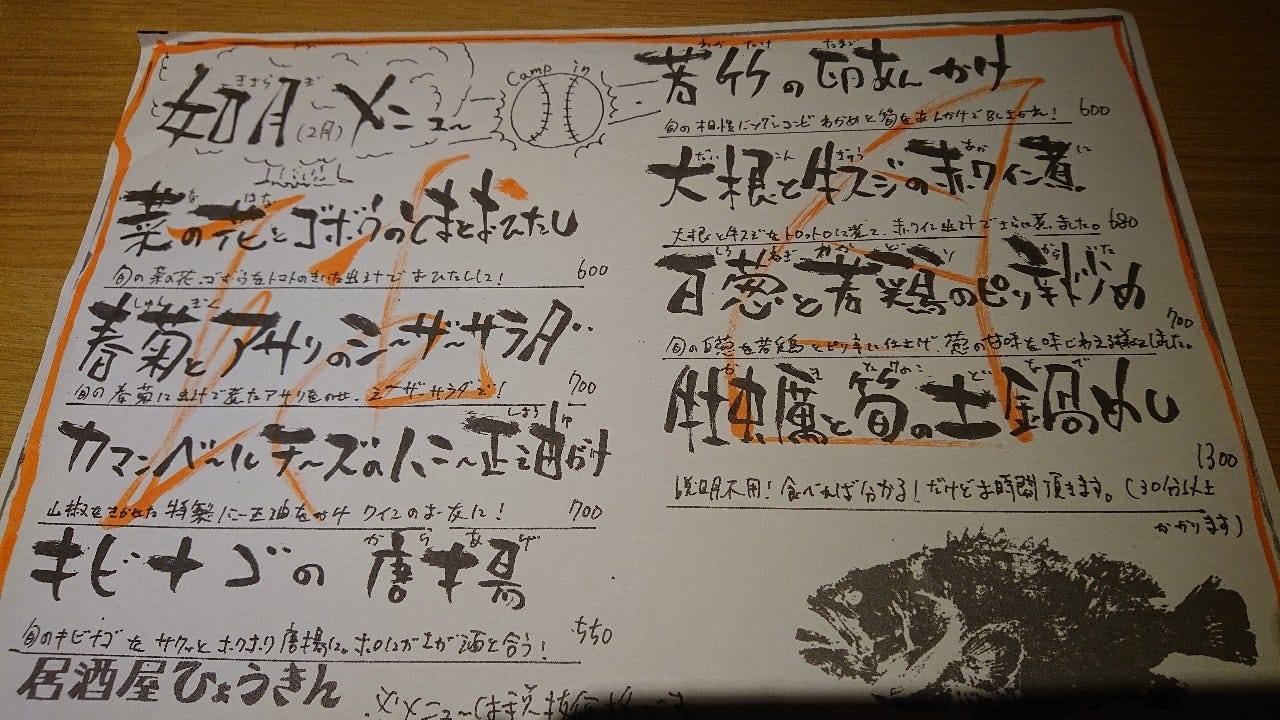 如月(2月)メニュー
きさらぎ
Camp in
菜の花とゴボウのごまとおひたし
旬の菜の花、ゴボウを
おひたしに!
600
春菊とアサリのシーザーサラダ
しゅんぎく
旬の春菊に出汁で煮たアサリをのせ、シーザーサラダで!
700
カマンベールチーズのハニー正油がけ
山椒をきかせた特製ハニー正油をかけ ワインのお友に!
700
キビナゴの唐揚
からあげ
旬のキビナゴをサクッとホクホク唐揚に。ホロにがさが酒と合う!
550
居酒屋ひょうきん
若竹の卵あんかけ
わかたけ たまご
旬の相性バツグンコンビ わかめと筍をあんかけで
600
大根と牛スジの赤ワイン煮
だいこん ぎゅう あか に
大根と牛スジをトロットロに煮て、赤ワインと出汁でさらに煮ました。
680
白葱と若鶏のピリ辛炒め
しろねぎ わかどり から
旬の白葱を若鶏とピリ辛い仕上げ 葱の甘味を味わえる様にしました。
700
牡蠣と筍の土鍋めし
かき たけのこ どなべ
1300
説明不用!食べれば分かる!だけどお時間頂きます。(30分以上
かかります)